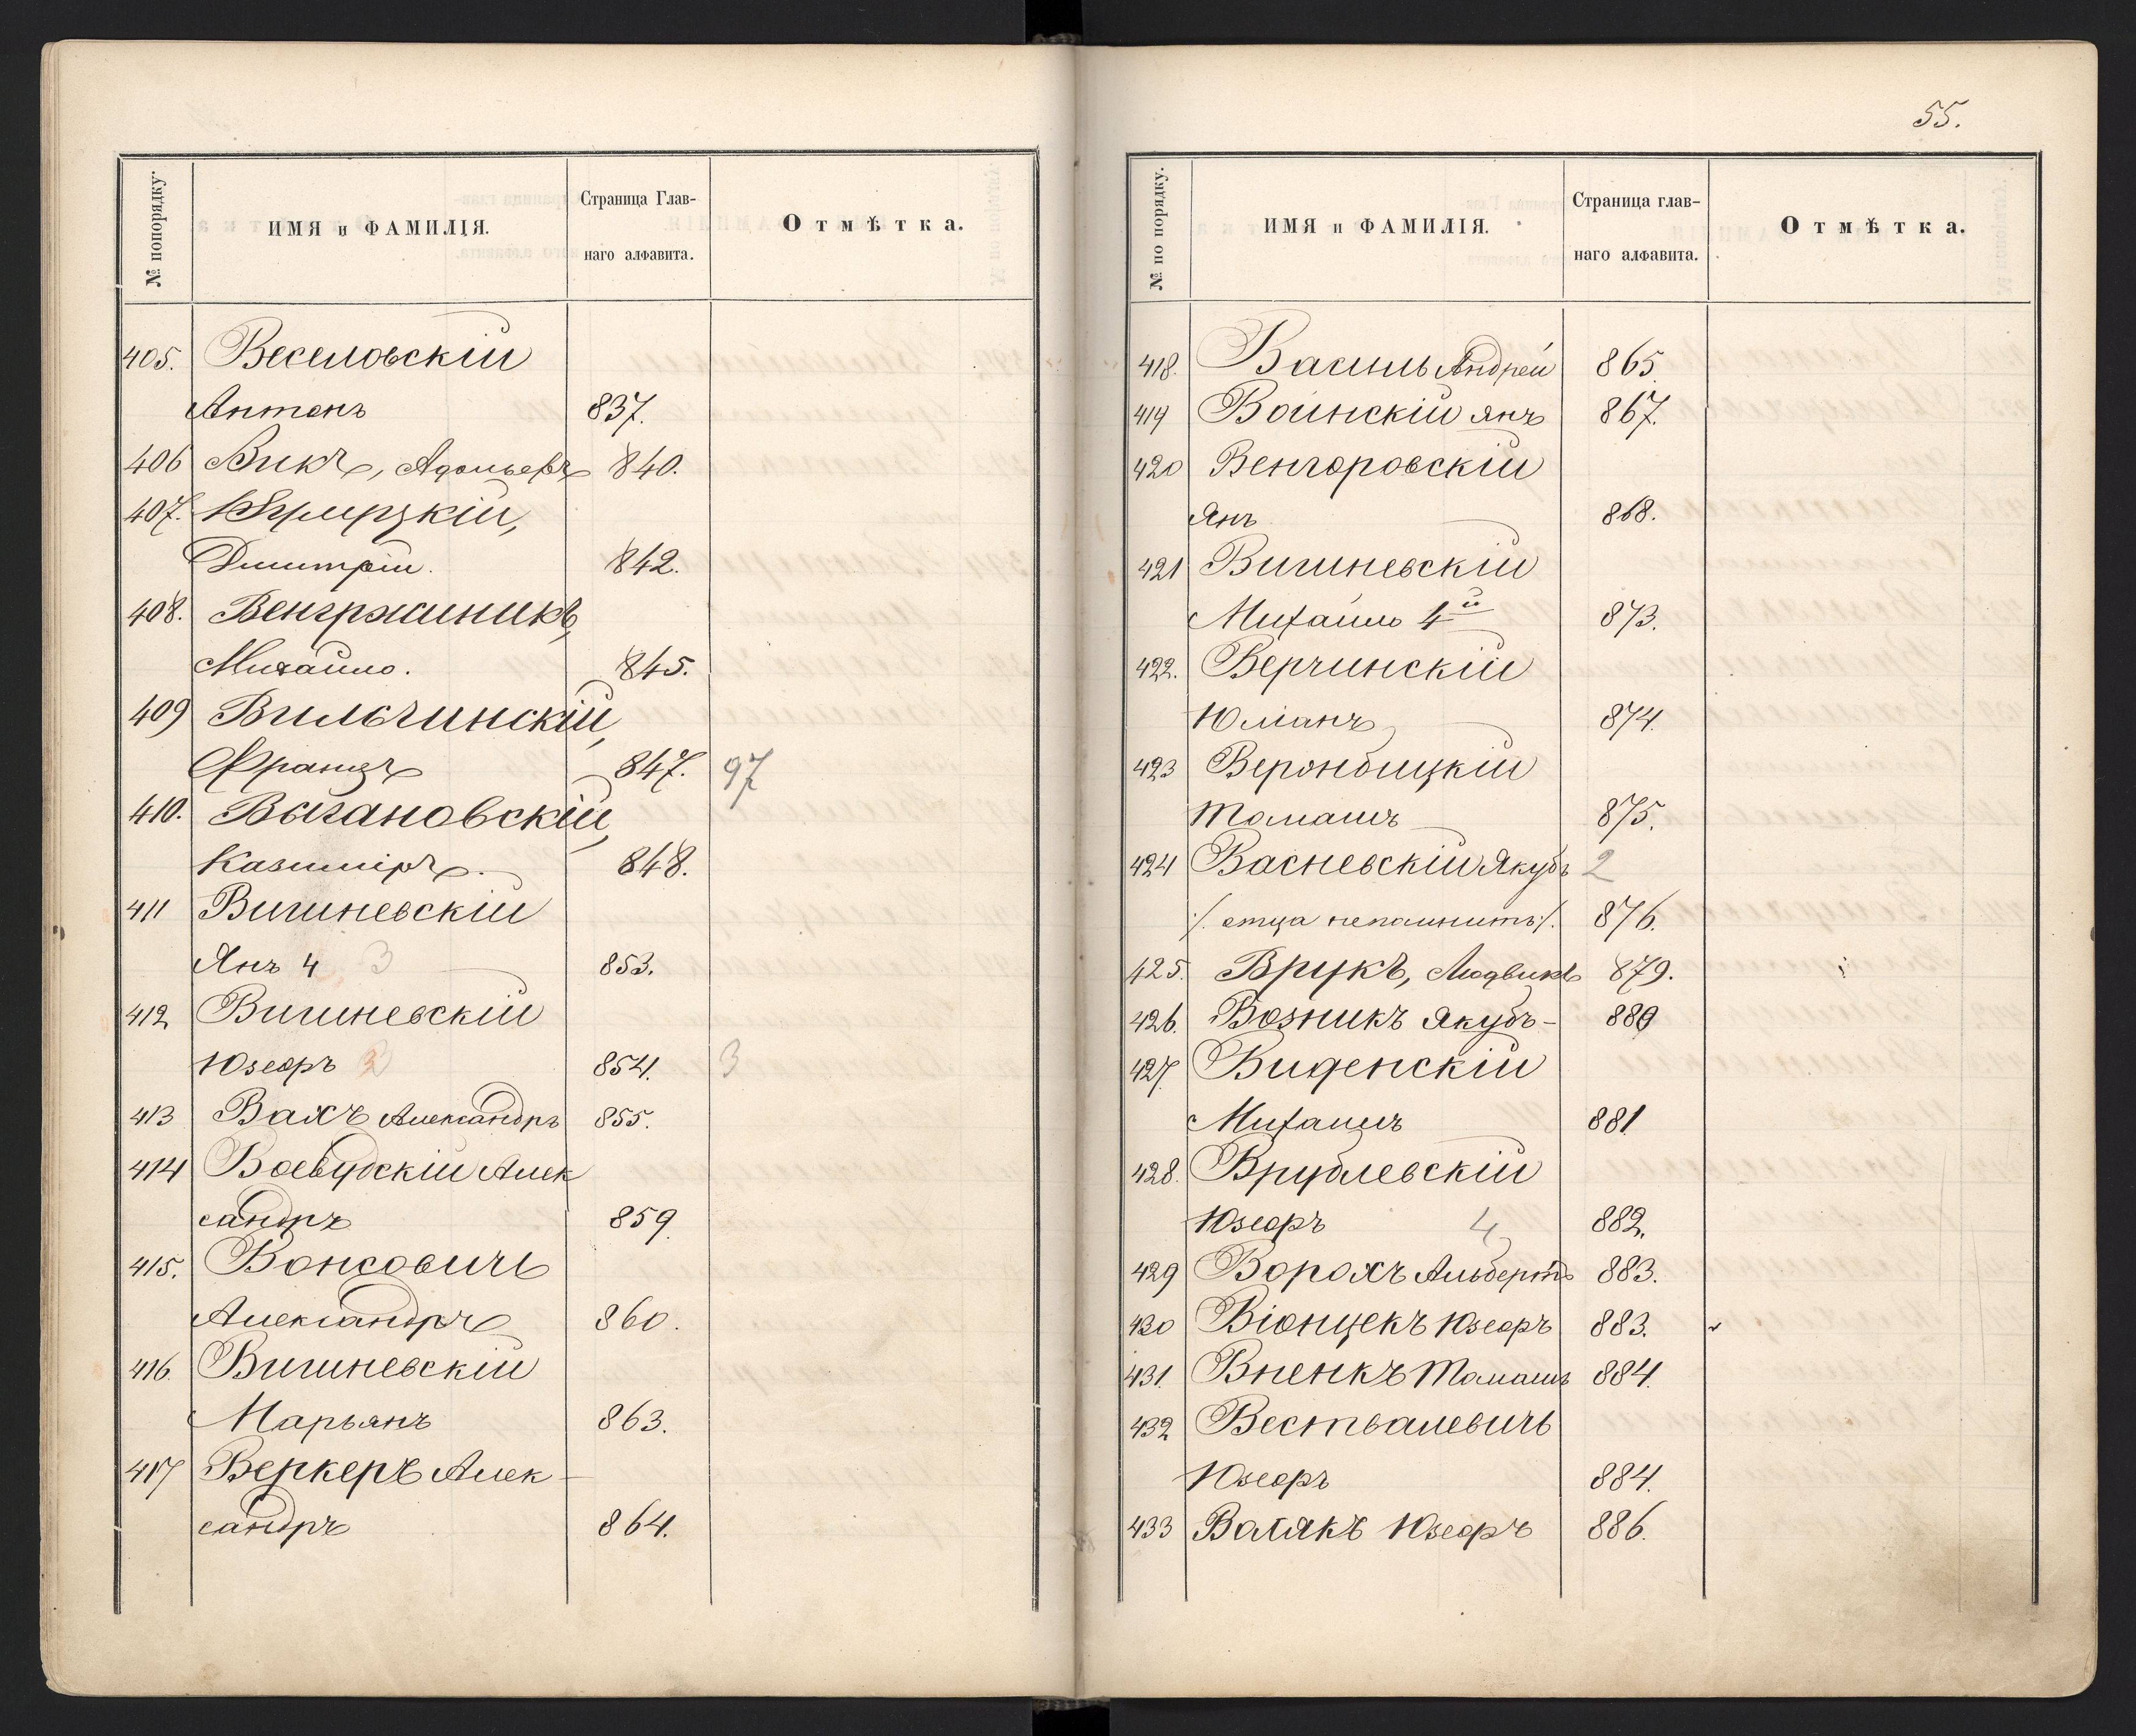 № попорядку.
ИМЯ и ФАМИЛІЯ.
Страница Глав-
наго алфавита.
Отмѣтка.
405. Веселовскій
Антонъ 837.
406 Викъ, 840.
407.
Дмитрій. 842.
408. Венгржиникъ,
Михаило. 845.
409 Вильчинскій,
Францъ 847. 97
410. Выгановскій,
Казиміръ. 848.
411 Вишневскій
Янъ 4 3 853.
412 Вишневскій
Юзефъ 854. 3
413 Вахъ Александръ 855.
414 Воевудскій Алек
сандръ 859.
415. Вонсовичъ
Александръ 860.
416. Вишневскій
Марьянъ 863.
417 Веркеръ Алек-
сандръ 864.
55.
№ по порядку.
ИМЯ и ФАМИЛІЯ.
Страница глав-
наго алфавита.
Отмѣтка.
418. Василь Андрей 865.
419 Войнскій Янъ 867.
420 Венгоровскій
Янъ 868.
421 Вишневскій
Михаилъ 4й 873.
422. Верчинскій
Юліанъ 874.
423 Вержбицкій
Томашъ 875.
424 Васневскій Якубъ 2
/. отца непомнитъ ./. 876.
425. Врукъ, Людвикъ 879.
426. Возникъ Якубъ - 880
427 Виденскій
Михаилъ 881
428. Врублевскій
Юзефъ 4 882.
429 Ворохъ Альбертъ 883.
430 Віонцекъ Юзефъ 883.
431. Вненкъ Томашъ 884.
432 Вествалевичъ
Юзефъ 884.
433 Валякъ Юзефъ 886.